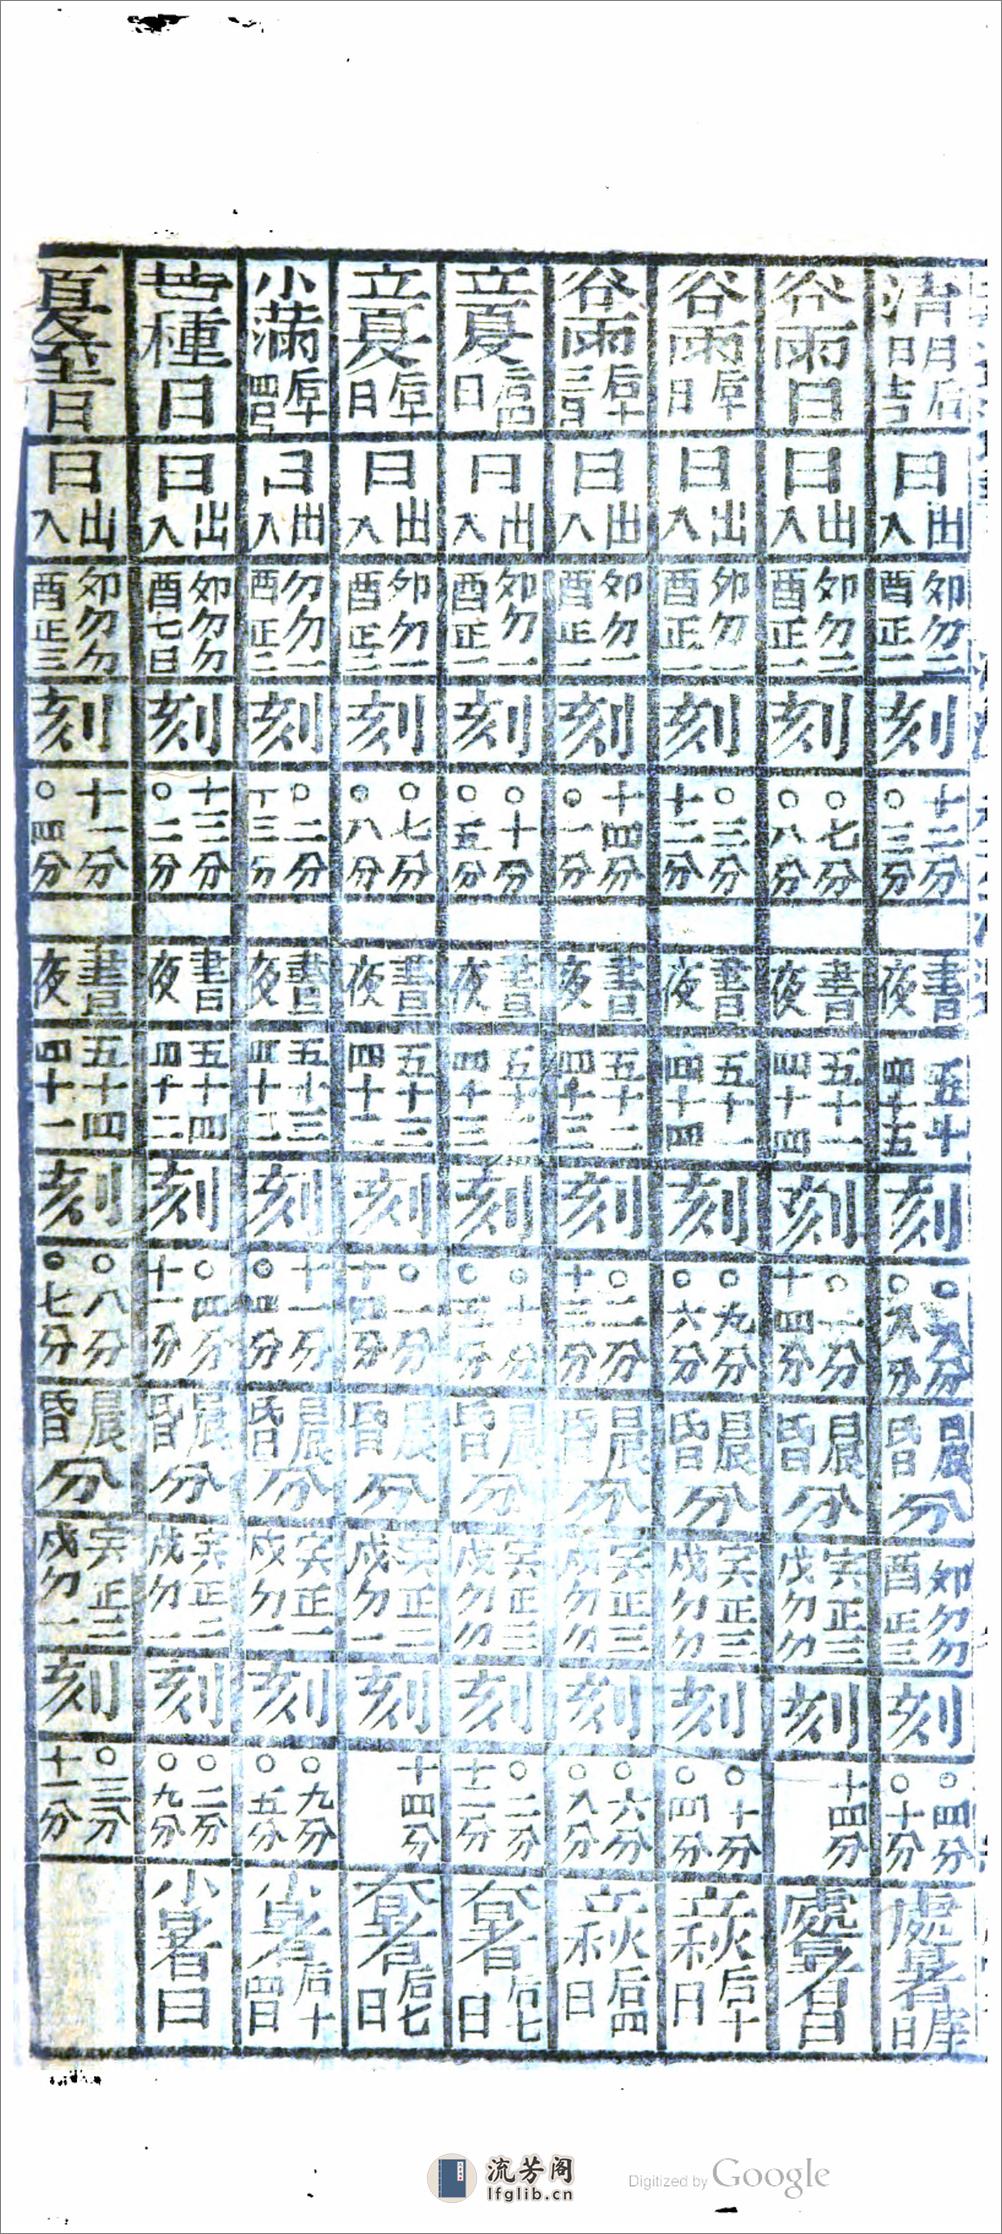 日出入卯勿二酉正二刻十二分〇三分晝夜五十四十五刻晨昏分卯勿勿酉正三刻〇四分〇十分處暑
谷雨日日出入卯勿二酉正二刻〇七分〇八分晝夜五十一四十四刻〇一分十四分晨昏分寅正三戌勿勿刻十四分處暑日
谷雨日日出入卯勿二酉正二刻〇三分十二分晝夜五十一四十四刻〇九分〇六分晨昏分寅正三戌勿勿刻〇十分〇四分立秋后十日
谷雨日出入卯勿一酉正一刻十四分〇一分晝夜五十二四十三刻〇二分十三分晨昏分寅正三戌勿勿刻〇六分〇八分立秋后四日
立夏日日出入卯勿一酉正二刻〇十分〇五分晝夜五十二四十三刻〇十分〇五分晨昏分寅正三戌勿勿刻〇二分十二分大暑后七日
立夏日日出入卯勿一酉正二刻〇七分〇八分晝夜五十三四十二刻〇一分十四分晨昏分寅正二戌勿一刻十四分大暑后七日
小滿日出入勿勿一酉正二刻〇二分十三分晝夜五十三四十二刻十一分〇四分晨昏分寅正一戌勿一刻〇九分〇五分小暑后十四日
芒種日日出入卯勿勿酉七日刻十三分〇二分晝夜五十四四十二刻〇四分十一分晨昏分寅正二戌勿一刻〇二分〇九分小暑日
夏至日日出入卯勿勿酉正三刻十一分〇四分晝夜五十四四十一刻〇八分〇七分晨昏分寅正二戌勿一刻〇三分十一分
流芳阁
lfglib.cn
Digitized by Google